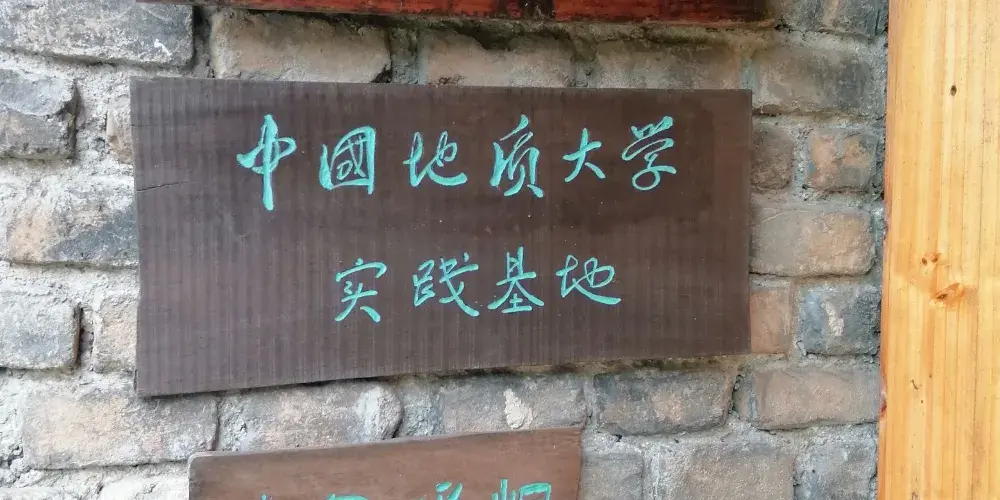 中國地质大学
实践基地